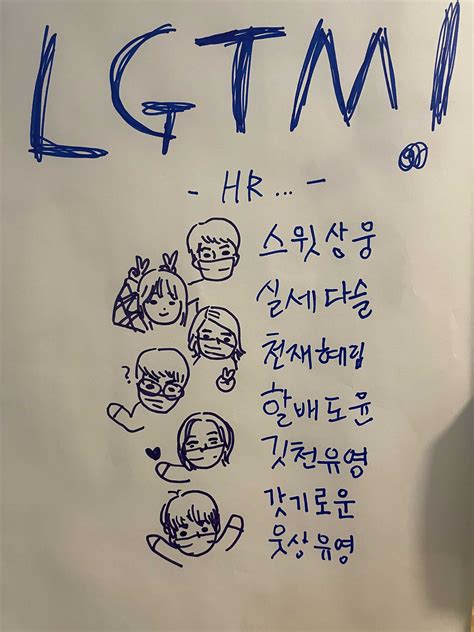 LGTM!
- HR... -
스윗상웅
실세다슬
천재혜림
?
할배도윤
깃천유영
갓기로운
웃상유영